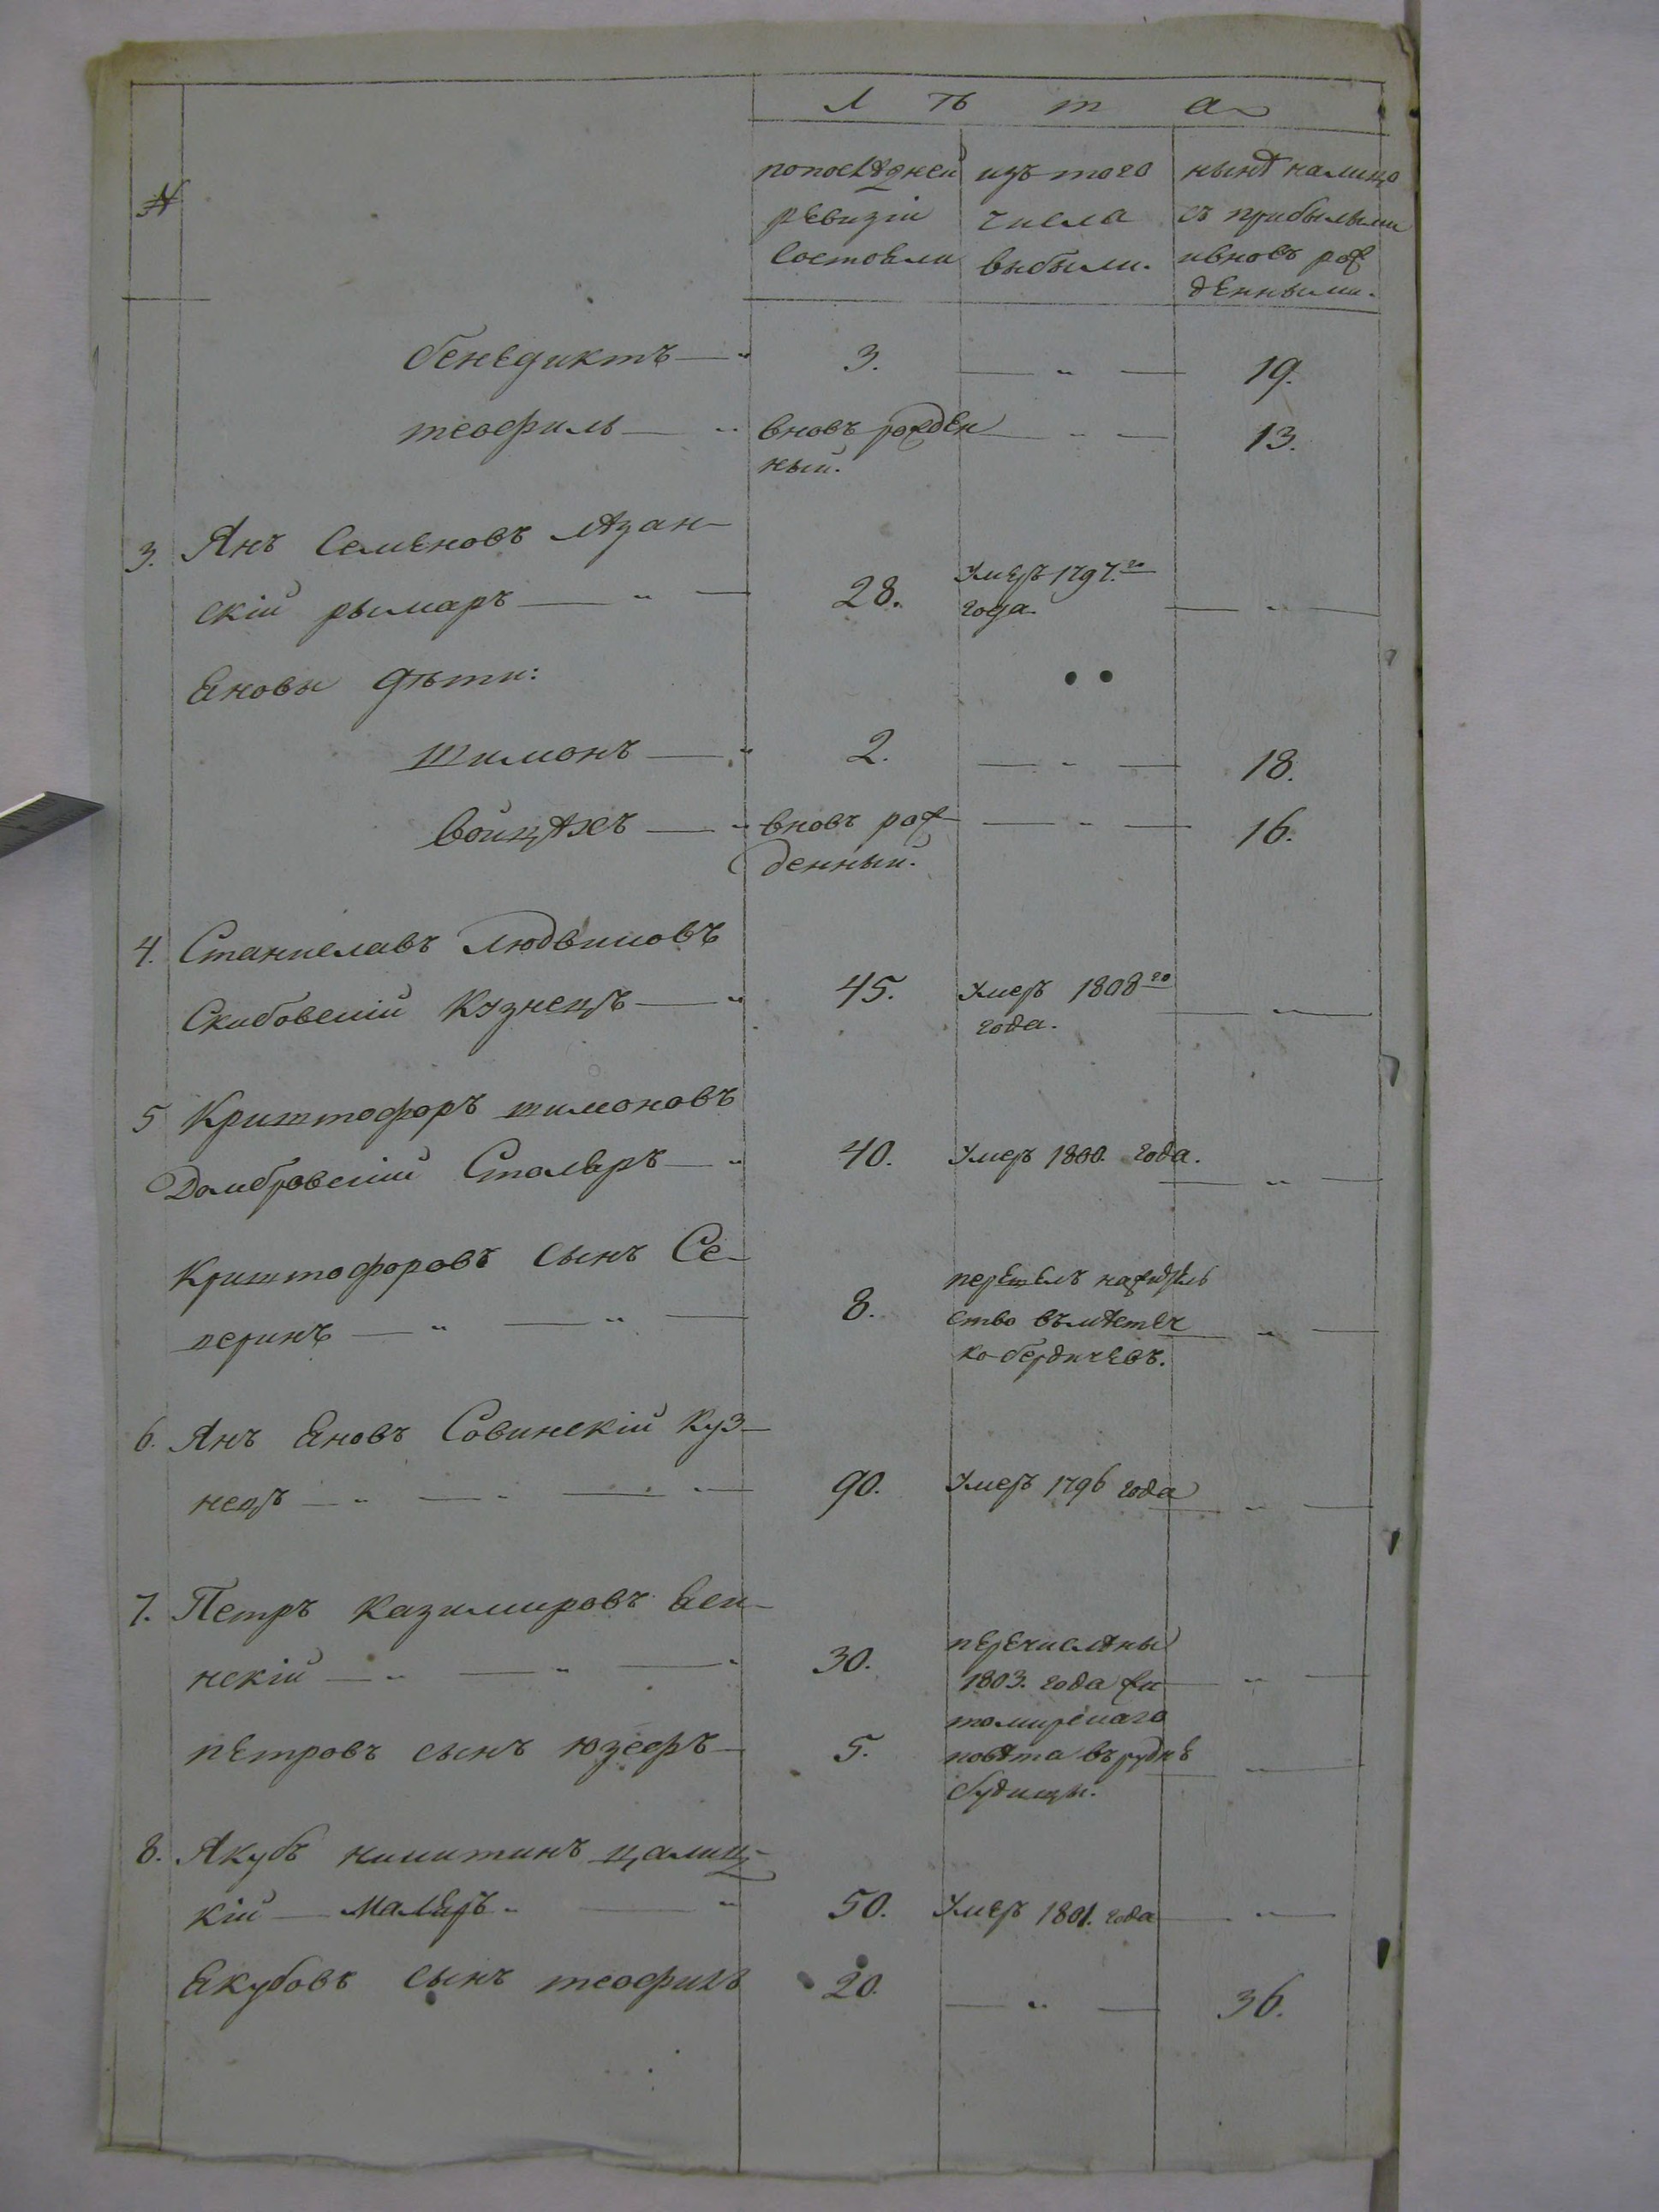 Л ѣ т а
№
попослѣдней изъ того нынѣ налицо
ревизіи числа съ прибылыми
состояли выбыли. ивновъ рож
денными.
бенедиктъ — „ 3. — „ — 19.
теофиль — „ вновъ рожден — „ — 13.
ный.
3. Янъ Семеновъ Язан-
скій рымаръ — „ — 28. Умеръ 1797.го
года. — „ —
Яновы дѣти:
шимонъ — „ 2. — „ — 18.
войцѣхъ — „ вновъ рож — „ — 16.
денный.
4. Станиславъ Людвиковъ
Скибовскій Кузнецъ — „ 45. Умеръ 1808го
года. — „ —
5 Криштофоръ шимоновъ
Домбровскій Столяръ — „ 40. Умеръ 1800. года. — „ —
Криштофоровъ сынъ Се-
веринъ — „ — „ — 8. перешелъ нажитель
ство вмѣстеч — „ —
ко бердичевъ.
6. Янъ Яновъ Совинскій Куз-
нецъ — „ — „ — „ — 90. Умеръ 1796 года — „ —
7. Петръ Казимировъ Яси-
нскій — „ — „ — „ 30. перечислены
1803. года жи — „ —
томирскаго
петровъ сынъ юзефъ — 5. повѣта въ руднѣ — „ —
будищи.
8. Якубъ никитинъ цалиц-
кій — Маляръ „ — „ 50. Умеръ 1801. года — „ —
Якубовъ сынъ теофилъ 20. — „ — 36.